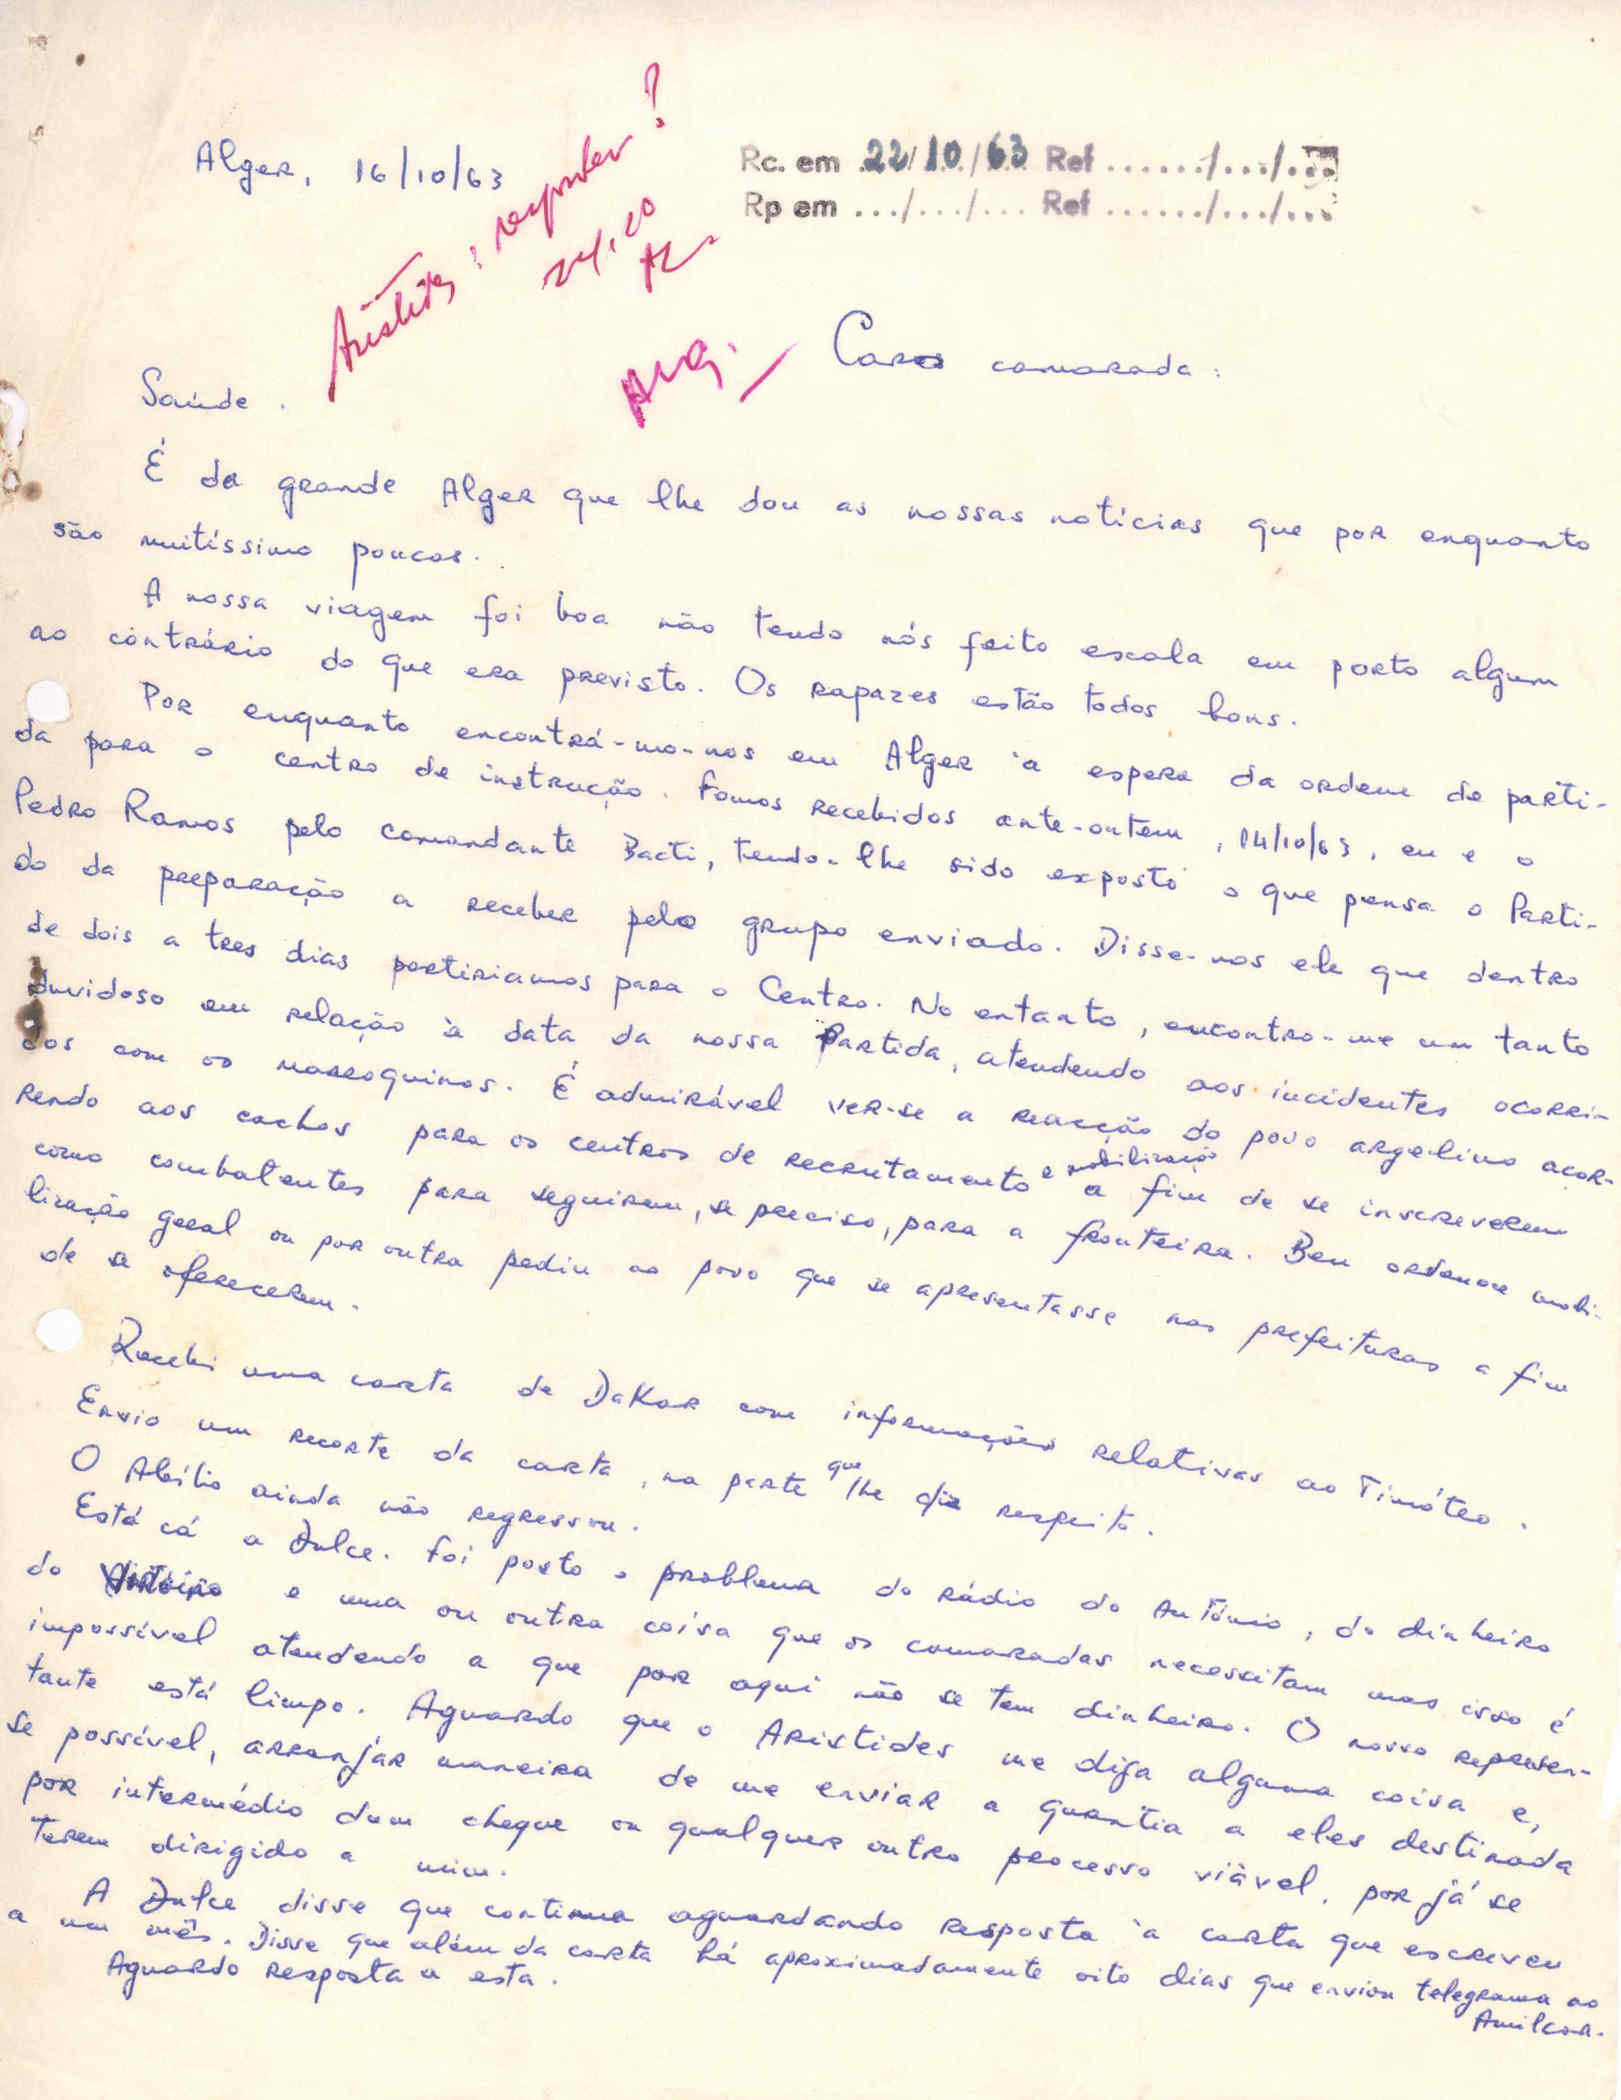 Alger, 16/10/63
Rc. em 22/10/63 Ref ....../.../...
Rp em .../.../... Ref ....../.../...
Aristides: responder?
24.10
Arq.
Caros camarada:
Saúde.
É da grande Alger que lhe dou as nossas notícias que por enquanto
são muitíssimo poucas.
A nossa viagem foi boa não tendo nós feito escala em porto algum
ao contrário do que era previsto. Os rapazes estão todos bons.
Por enquanto encontrá-mo-nos em Alger à espera da ordem de parti-
da para o centro de instrução. Fomos recebidos ante-ontem, 14/10/63, eu e o
Pedro Ramos pelo comandante Bacti, tendo-lhe sido exposto o que pensa o Parti-
do da preparação a receber pelo grupo enviado. Disse-nos ele que dentro
de dois a tres dias partiriamos para o Centro. No entanto, encontro-me um tanto
duvidoso em relação à data da nossa Partida, atendendo aos incidentes ocorri-
dos com os marroquinos. É admirável ver-se a reacção do povo argelino acor-
rendo aos cachos para os centros de recrutamento e mobilização a fim de se inscreverem
como combatentes para seguirem, se preciso, para a fronteira. Ben ordenou mobi-
lização geral ou por outra pediu ao povo que se apresentasse nas prefeituras a fim
de se oferecerem.
Recebi uma carta de Dakar com informações relativas ao Timóteo.
Envio um recorte da carta, na parte que lhe diz respeito.
O Abílio ainda não regressou.
Está cá a Dulce. Foi posto o problema do rádio do António, do dinheiro
do e uma ou outra coisa que os camaradas necessitam mas isso é
impossível atendendo a que por aqui não se tem dinheiro. O nosso represen-
tante está limpo. Aguardo que o Aristides me diga alguma coisa e,
se possível, arranjar maneira de me enviar a quantia a eles destinada
por intermédio dum cheque ou qualquer outro processo viável, por já se
terem dirigido a mim.
A Dulce disse que continua aguardando resposta à carta que escreveu
a um mês. Disse que além da carta há aproximadamente oito dias que enviou telegrama ao
Amilcar.
Aguardo resposta a esta.